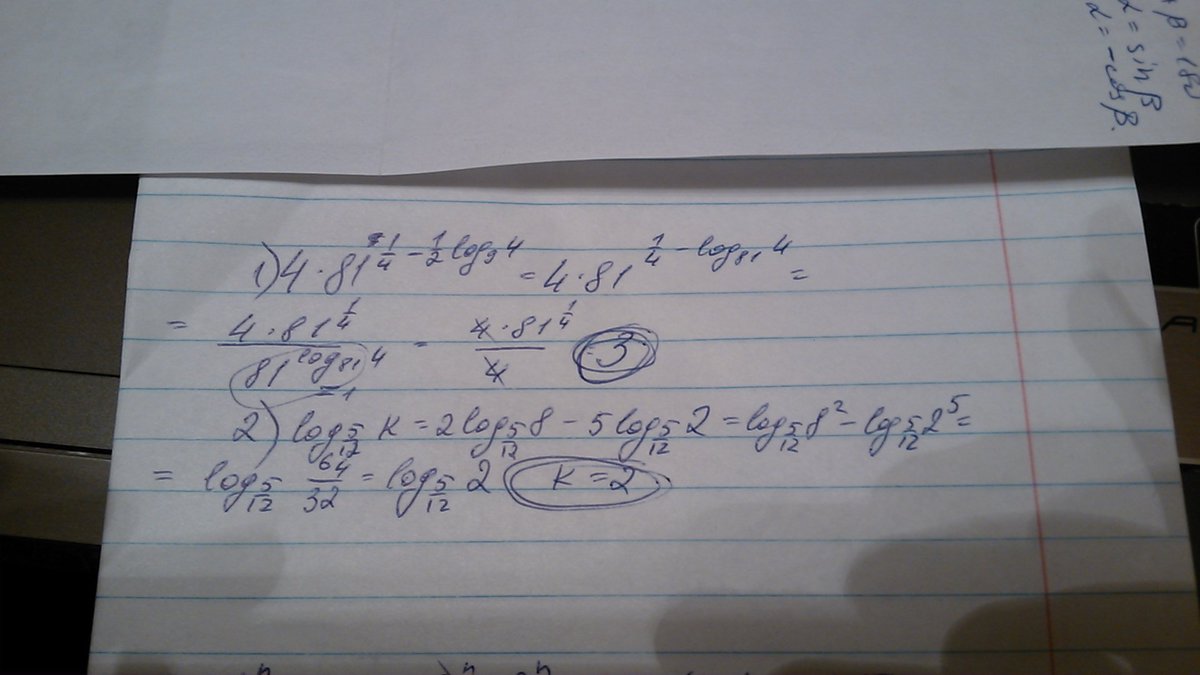 β = 180
α = sin β
α = -cos β.
1) 4 · 81^(1/4 - 1/2 log_9 4) = 4 · 81^(1/4 - log_81 4) =
= (4 · 81^(1/4)) / (81^(log_81 4)) = (4 · 81^(1/4)) / 4 3
2) log_(5/12) K = 2 log_(5/12) 8 - 5 log_(5/12) 2 = log_(5/12) 8^2 - log_(5/12) 2^5 =
= log_(5/12) 64/32 = log_(5/12) 2 K = 2